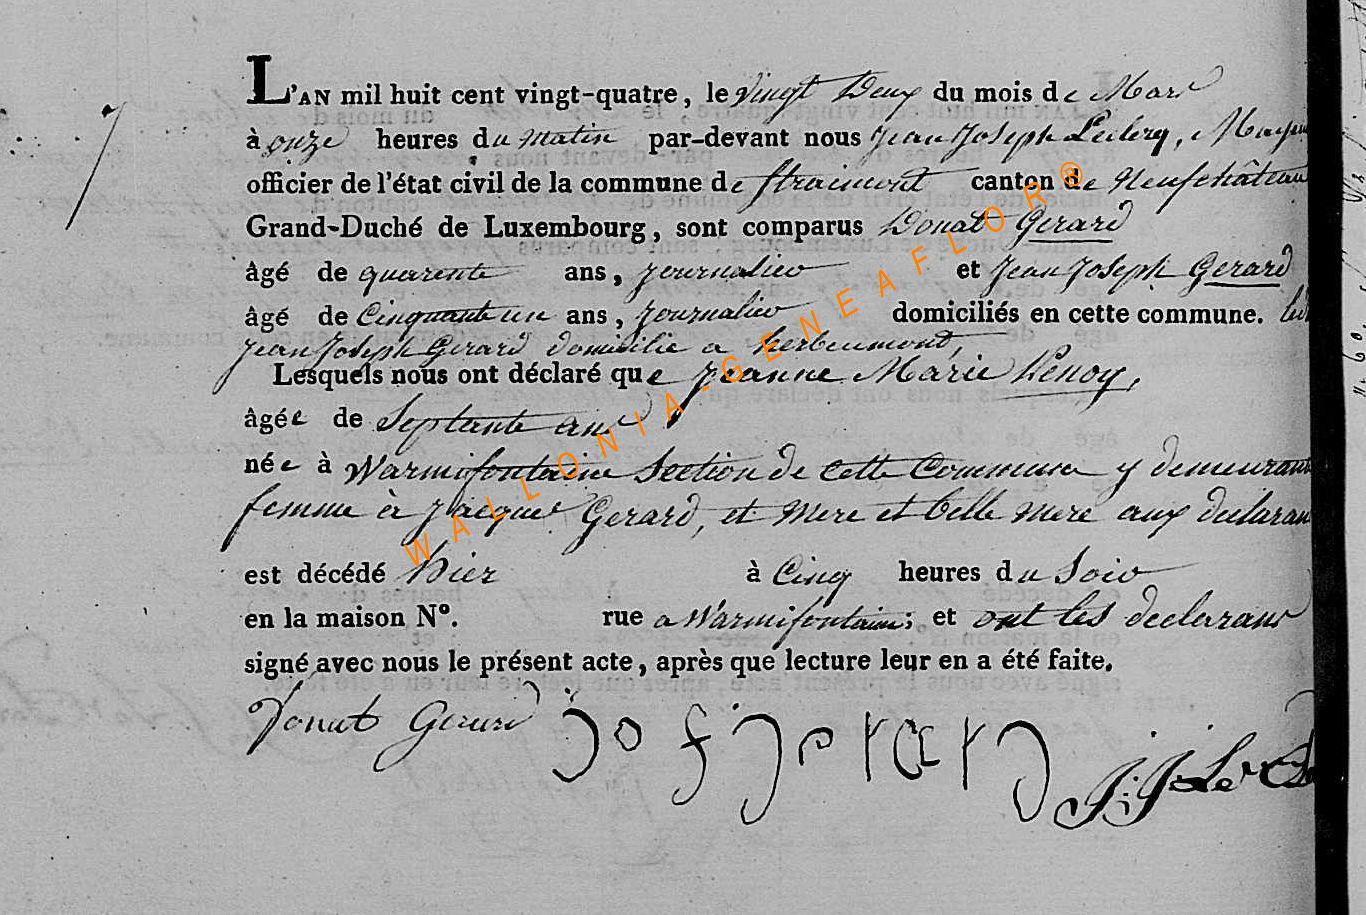 7
L'AN mil huit cent vingt-quatre, le vingt Deux du mois de Mars
à onze heures du matin par-devant nous Jean Joseph Leclerq,
officier de l'état civil de la commune de Straimont canton de Neufchâteau
Grand-Duché de Luxembourg, sont comparus Donat Gerard
âgé de quarente ans, journalier et Jean Joseph Gerard
âgé de Cinquante un ans, journalier domiciliés en cette commune.
Jean Joseph Gerard domicilié a herbeumont,
Lesquels nous ont déclaré que Jeanne Marie Henoy,
âgée de Septante ans
née à Warmifontaine Section de cette Commune y demeurant
femme à Jacque Gerard, et mere et belle mere aux declarans
est décédé hier à Cinq heures du Soir
en la maison N°. rue a Warmifontaine; et ont les declarans
signé avec nous le présent acte, après que lecture leur en a été faite.
Donat Gerard jo f jerard
WALLONIA-GENEAFLOR®